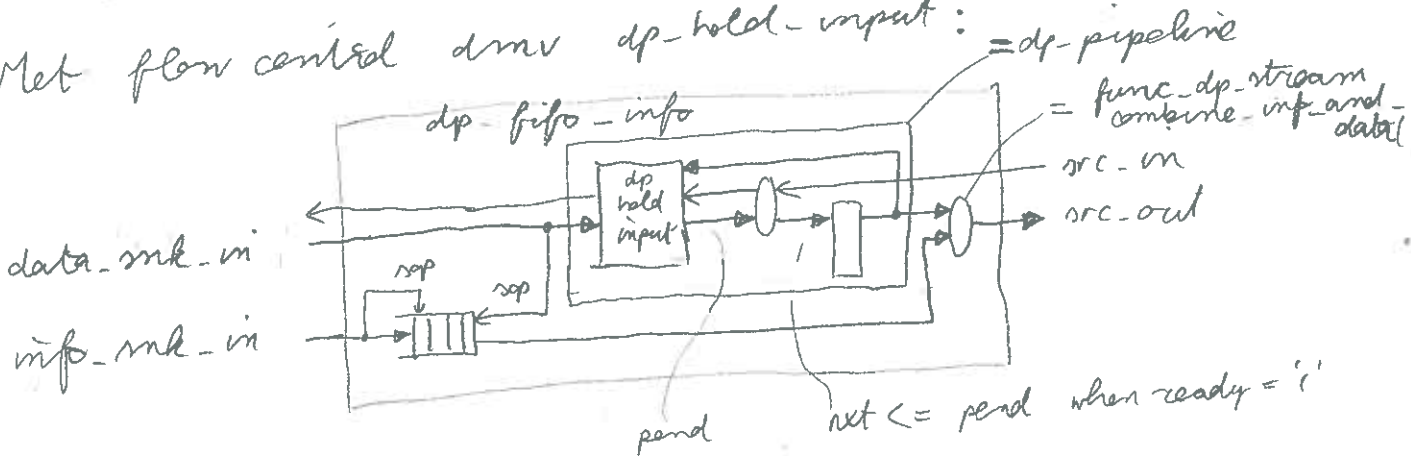 Met flow control dmv dp-hold-input :
= dp-pipeline
dp_fifo_info
= func_dp_stream
combine_inf_and_
data(
dp
hold
input
src_in
src_out
data_snk_in
sop
sop
info_snk_in
pend
nxt <= pend when ready = '1'